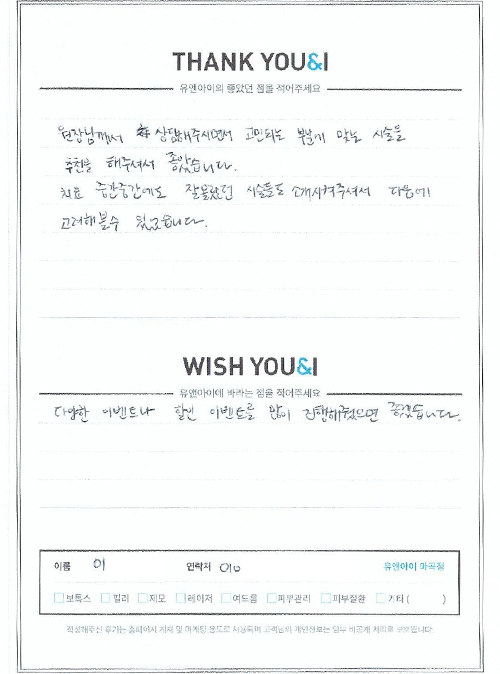 THANK YOU&I
유앤아이의 좋았던 점을 적어주세요
원장님께서 상담해주시면서 고민되는 부분에 맞는 시술을
추천을 해주셔서 좋았습니다.
치료 중간중간에도 잘몰랐던 시술들도 소개시켜주셔서 다음에
고려해볼수 있었습니다.
WISH YOU&I
유앤아이에 바라는 점을 적어주세요
다양한 이벤트나 할인 이벤트를 많이 진행해줬으면 좋겠습니다.
이름 이 연락처 010 유앤아이 마곡점
보톡스 필러 제모 레이저 여드름 피부관리 피부질환 기타 ( )
작성해주신 후기는 홈페이지 게재 및 마케팅 용도로 사용되며 고객님의 개인정보는 일부 비공개 처리로 보호됩니다.